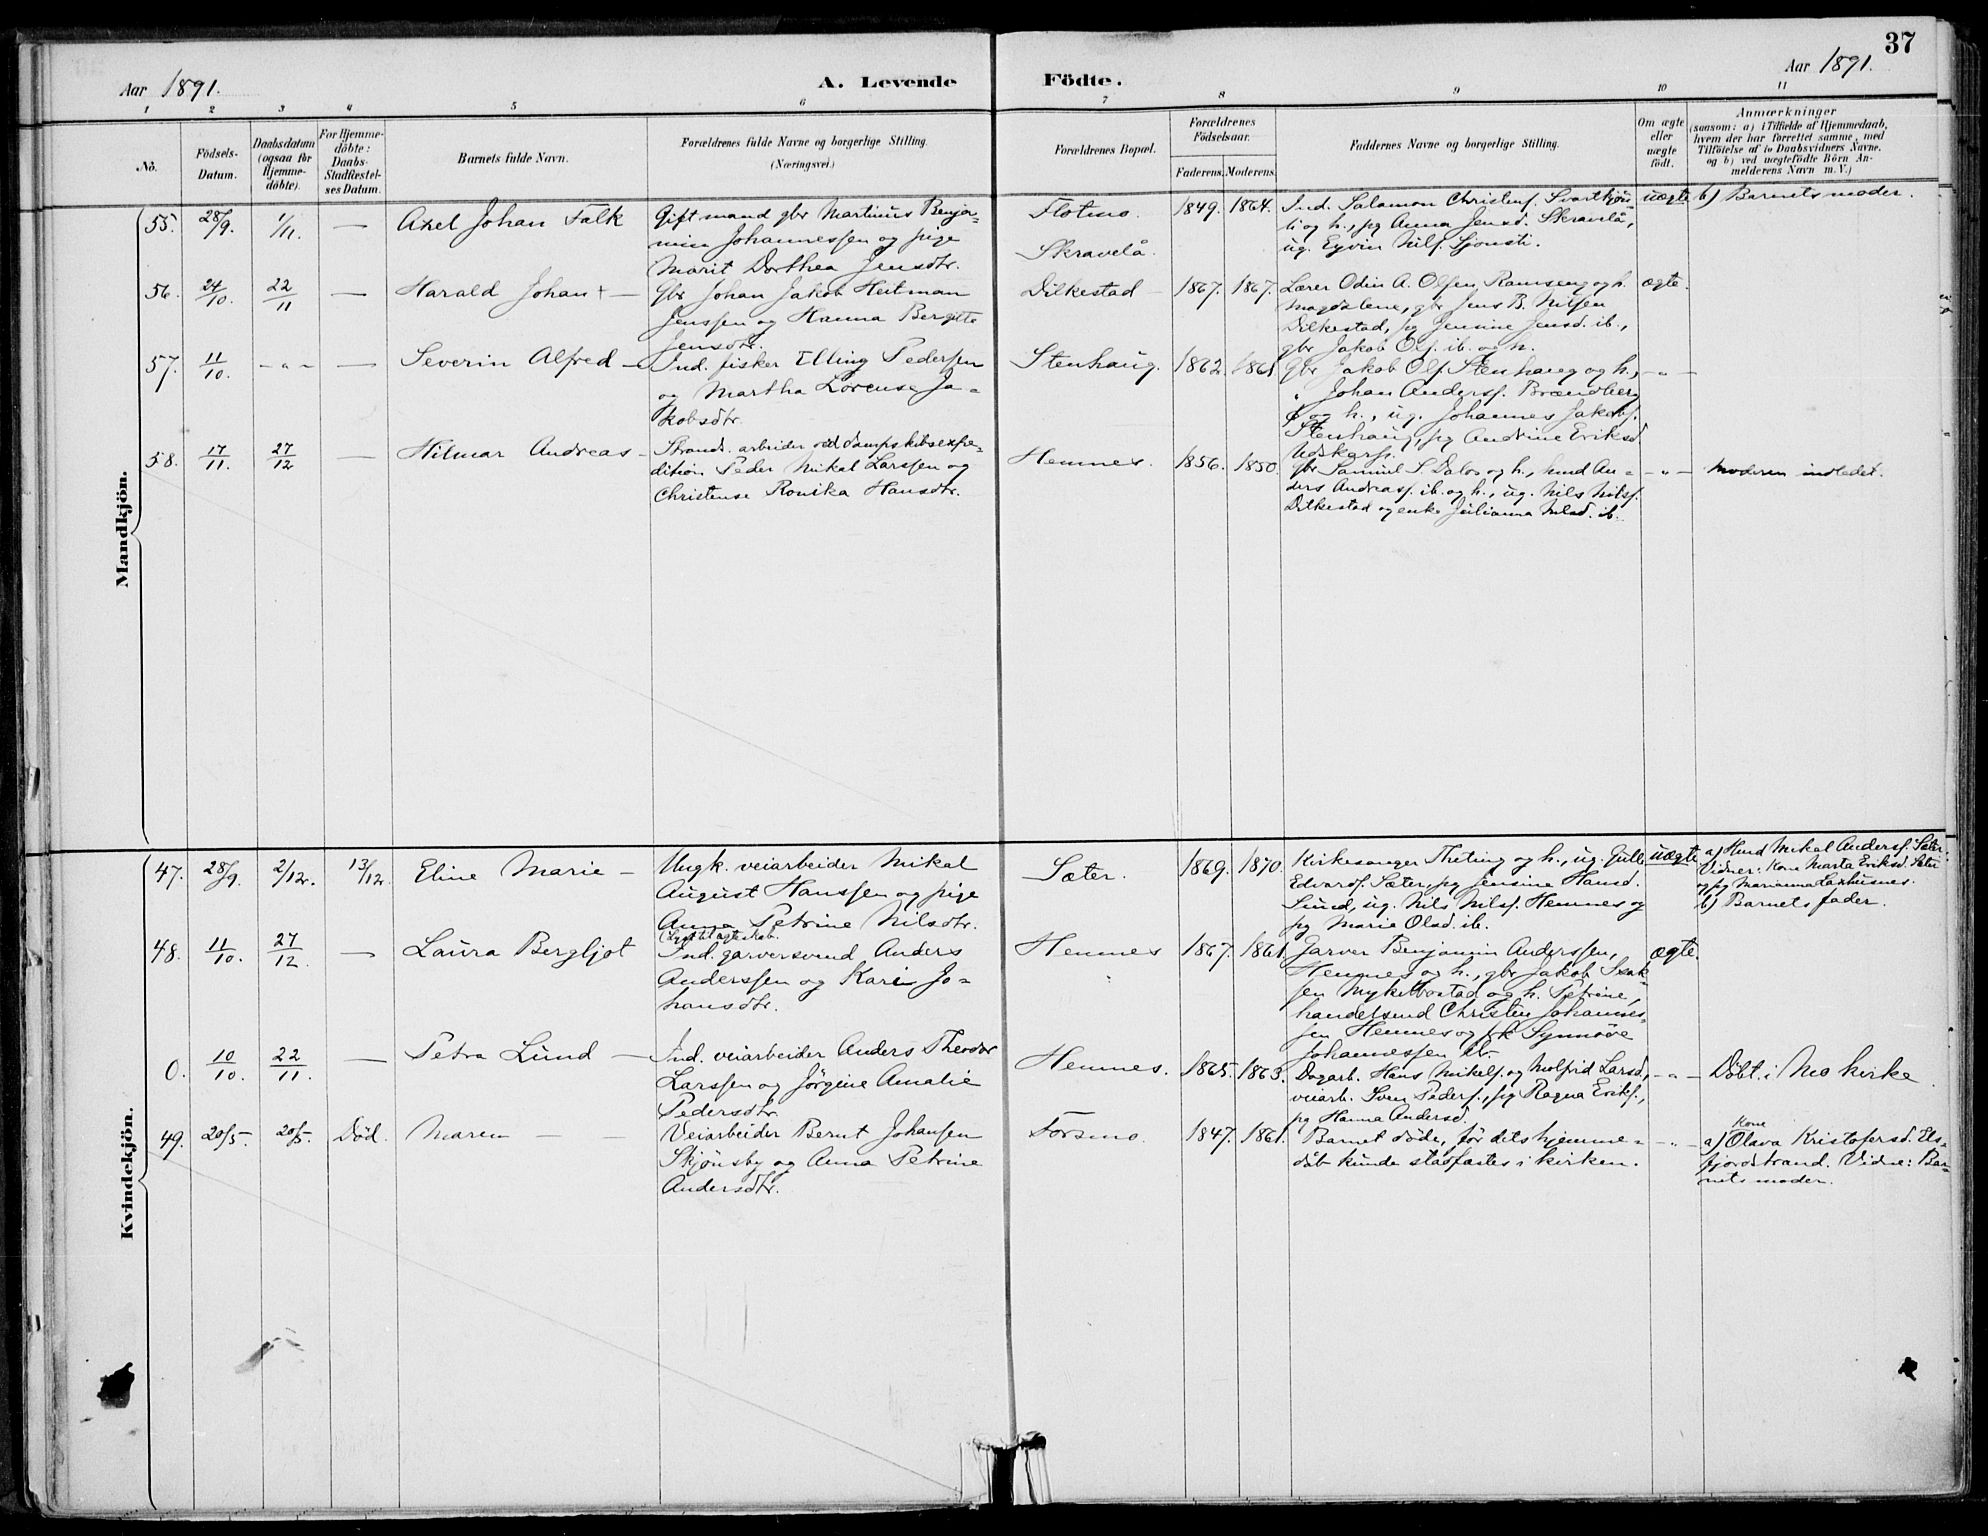 37
Aar 1891.
A. Levende Födte.
Aar 1891.
1 2 3 4 5 6 7 8 9 10 11
No.
Födsels-
Datum.
Daabsdatum
(ogsaa for
Hjemme-
döbte).
For Hjemme-
döbte:
Daabs-
Stadfæstel-
ses Datum.
Barnets fulde Navn.
Forældrenes fulde Navne og borgerlige Stilling.
(Næringsvei.)
Forældrenes Bopæl.
Forældrenes
Födselsaar.
Faderens. Moderens.
Faddernes Navne og borgerlige Stilling.
Om ægte
eller
uægte
födt.
Anmærkninger
(saasom: a) i Tilfælde af Hjemmedaab,
hvem der har forrettet samme, med
Tilföielse af to Daabsvidners Navne,
og b) ved uægtefödte Börn An-
melderens Navn m. V.)
Mandkjön.
55. 28/9. 1/11. — Axel Johan Falk
Gift mand gbr Martinus Benja-
min Johannessen og pige
Marit Dorthea Jensdtr.
Flotmo.
Skravelå.
1849. 1864.
Ind. Salamon Christens. Svartkjøn-
li og h., pg Anna Jensd. Skravlå,
ug. Eyvin Nilss. Sjonsti.
uægte b) Barnets moder.
56. 24/10. 22/11 — Harald Johan + —
Gbr Johan Jakob Heitman
Jenssen og Hanna Bergitte
Jensdtr.
Dilkestad 1867. 1867.
Lærer Odin A. Olsen, Ramseng og h.
Magdalene, gbr Jens B. Nilsen
Dilkestad, pg Jensine Jensd. ib.,
gbr Jakob Ols. ib. og h.
ægte.
57. 11/10. - " - — Severin Alfred —
Ind. fisker Elling Pedersen
og Martha Lorense Ja-
kobsdtr.
Stenhaug. 1862. 1861
Gbr Jakob Ols. Stenhaug og h.,
" Johan Anders. Brændberg
og h., ug. Johannes Jakobs.
Stenhaug, pg Andrine Eriksd.
Udskarp.
- " -
58. 17/11. 27/12 — Hilmar Andreas —
Strands. arbeider ved dampskibsexpe-
dition Peder Mikal Larssen og
Christense Ronika Hansdtr.
Hemnes. 1856. 1850.
gbr Samuel S. Dalos og h., hmd An-
ders Andreas. ib. og h., ug. Nils Nilss.
Dilkestad og enke Julianna Nilsd. ib.
- " - Moderen indledet.
Kvindekjön.
47. 28/9. 2/12. 13/12 Eline Marie —
Ungk. veiarbeider Mikal
August Hanssen og pige
Anna Petrine Nilsdtr.
Sæter. 1869. 1870.
Kirkesanger Theting og h., ug. Jull
Edvards. Sæter, pg Jensine Hansd.
Lund, ug. Nils Nilss. Hemnes og
pg Marie Olsd. ib.
uægte
a) Hmd Mikal Anders. Sæter.
Vidner: Kone Marta Eriksd. Sæter
og pg Marianna Laxhusnes.
b) Barnets fader.
48. 11/10. 27/12. — Laura Bergljot
(Lyst til ægteskab.
Ind. garversvend Anders
Anderssen og Karen Jo-
hansdtr.
Hemnes 1867. 1861.
Garver Benjamin Anderssen,
Hemnes og h., gbr Jakob Isak-
sen Mykelbostad og h. Petrine,
handelsmd Christen Johannes-
sen Hemnes og frk Synnöve
Johannessen ib.
ægte.
0. 10/10. 22/11. — Petra Lund —
Ind. veiarbeider Anders Theodor
Larssen og Jörgine Amalie
Pedersdtr.
Hemnes. 1865. 1863.
Dagarb. Hans Mikels. og Molfrid Larsd.,
veiarb. Sven Peders., pg Ragna Eriks.,
pg Hanna Andersd.
- " - Döbt i Mo kirke.
49. 20/5. 20/5. Död. Maren — —
Veiarbeider Bernt Johansen
Skjönsby og Anna Petrine
Andersdtr.
Forsmo. 1847. 1861.
Barnet döde, för dets hjemme-
dåb kunde stadfæstes i kirken.
- " -
Kone
a) Olava Kristofersd. Els-
fjordstrand. Vidne: Bar-
nets moder.